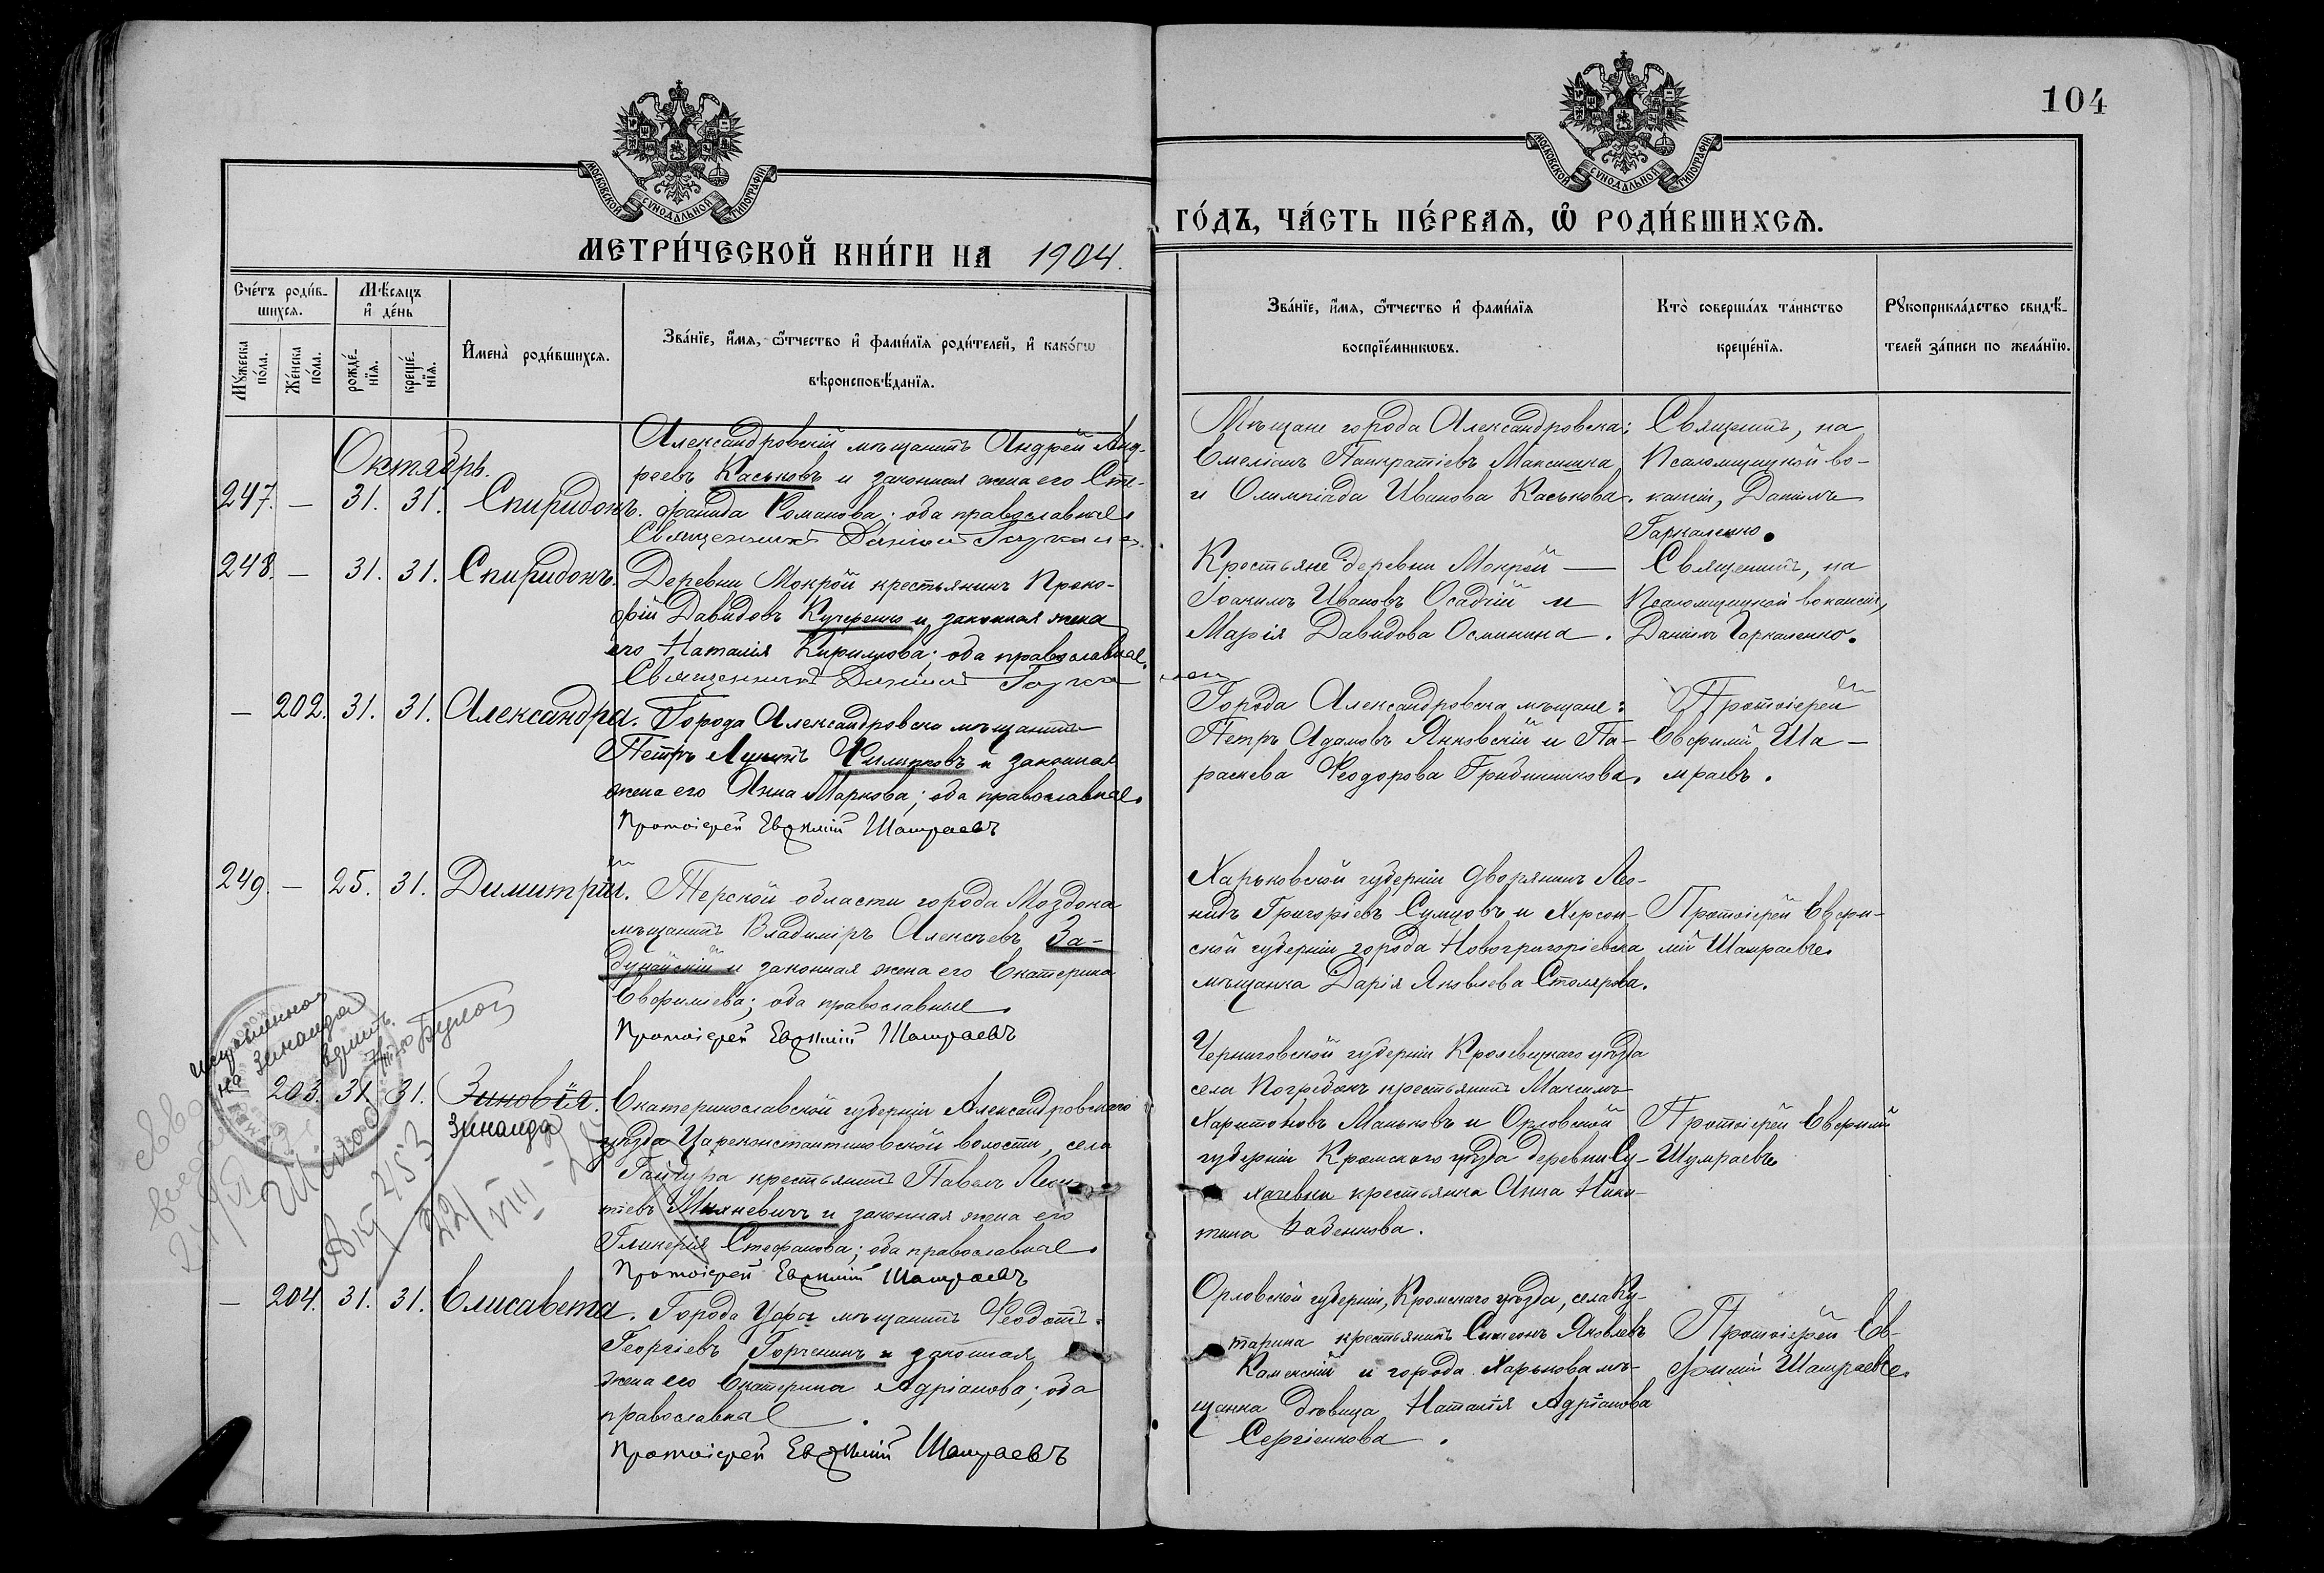 104
МОСКОВСКОЙ СѴНОДАЛЬНОЙ ТИПОГРАФІИ
МОСКОВСКОЙ СѴНОДАЛЬНОЙ ТИПОГРАФІИ
МЕТРИ́ЧЕСКОЙ КНИ́ГИ НА 1904.
ГО́ДЪ, ЧА́СТЬ ПЕ́РВАѦ, Ѡ҆ РОДИ́ВШИХСѦ.
Сче́тъ роди́в-
шихсѧ.
Мꙋ́жеска по́ла.
Же́нска по́ла.
Мѣ́сѧцъ
и҆ де́нь
рожде́-
нїѧ.
креще́-
нїѧ.
И҆мена̀ роди́вшихсѧ.
Зва́нїе, и҆́мѧ, ѻ҆́тчество и҆ фами́лїѧ роди́телей, и҆ како́гѡ
вѣроисповѣ́данїѧ.
Зва́нїе, и҆́мѧ, ѻ҆́тчество и҆ фами́лїѧ
воспрїе́мникѡвъ.
Кто̀ соверша́лъ та́инство
креще́нїѧ.
Рꙋкоприкла́дство свидѣ́-
телей за́писи по жела́нїю.
Октябрь.
247. — 31. 31. Спиридонъ.
Александровскій мѣщанинъ Андрей Анд-
реевъ Каськовъ и законная жена его Сте-
фанида Романова; оба православные
Священникъ Даніилъ
Мѣщане города Александровска:
Емеліанъ Панкратіевъ Максишка
и Олимпіада Иванова Каськова.
Священникъ, на
Псаломщицкой ва-
кансіи, Даніилъ
Гаркаленко.
248. — 31. 31. Спиридонъ.
Деревни Мокрой крестьянинъ Проко-
фій Давидовъ Кучеренко и законная жена
его Наталія Кирилова; оба православные.
Священникъ Даніилъ
Крестьяне деревни Мокрой —
Іоакимъ Ивановъ Осадчій и
Марія Давидова Осминина.
Священникъ, на
Псаломщицкой вакансіи,
Даніилъ Гаркаленко.
— 202. 31. 31. Александра.
Города Александровска мѣщанинъ
Петръ Филипповъ и законная
жена его Анна Маркова; оба православные.
Протоіерей Евѳимій Шамраевъ
Города Александровска мѣщане:
Петръ Адамовъ Янковскій и Па-
раскева Ѳеодорова Грибинникова.
Протоіерей
Евфимій Ша-
мраевъ.
249. — 25. 31. Димитрій.
Терской области города Моздока
мѣщанинъ Владиміръ Алексѣевъ За-
дунайскій и законная жена его Екатерина
Евфиміева; оба православные.
Протоіерей Евѳимій Шамраевъ
Харьковской губерніи дворянинъ Лео-
нидъ Григоріевъ Сумцовъ и Херсон-
ской губерніи города Новогригоріевска
мѣщанка Дарія Яковлева Столярова.
Протоіерей Евфи-
мій Шамраевъ.
исправленно
на Зинаида
вѣрить
— 203. 31. 31. Зиновія.
Зинаида
Акт 2153
22/VIII
Екатеринославской губерніи Александровскаго
уѣзда Цареконстантиновской волости, села
Гайчура крестьянинъ Павелъ Леон-
тіевъ Михневичъ и законная жена его
Гликерія Стефанова; оба православные.
Протоіерей Евѳимій Шамраевъ
Черниговской губерніи Кролевецкаго уѣзда
села Погребокъ крестьянинъ Максимъ
Харитоновъ Маньковъ и Орловской
губерніи Кромскаго уѣзда деревни Су-
хачевки крестьянка Анна Ники-
тина Баденкова.
Протоіерей Евфимій
Шамраевъ
— 204. 31. 31. Елисавета.
мѣщанинъ Ѳеодотъ
Георгіевъ Горченинъ и законная
жена его Екатерина Адріанова; оба
православные.
Протоіерей Евѳимій Шамраевъ
Орловской губерніи, Кромскаго уѣзда, села Ку-
тарина крестьянинъ Симеонъ Яковлевъ
Каменскій и города Харькова мѣ-
щанка дѣвица Наталія Адріанова
Сергіенкова.
Протоіерей Ев-
фимій Шамраевъ.